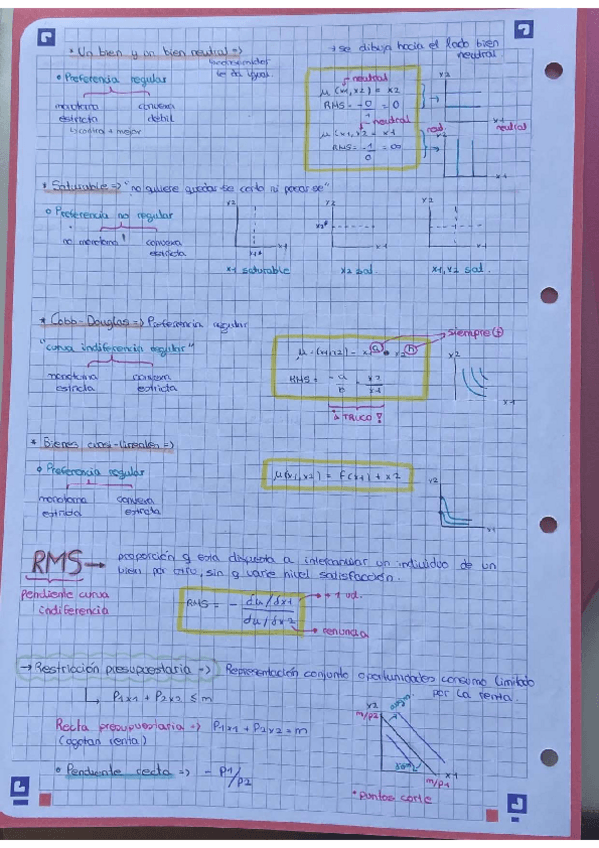 * Un bien y un bien neutral =>
→ se dibuja hacia el lado bien neutral
se da igual.
• Preferencia regular
monótona estricta
convexa débil
↳ contra + mejor
neutral
μ (x1, x2) = x2
RMS = -0/1 = 0
neutral
μ (x1, x2 = x1
RMS = -1/0 = ∞
x2
x1
neutral
x1
* Saturable => "no quiere quedarse corto ni pasarse"
o Preferencia no regular
no monótona!
convexa estricta
x2
x1
x1*
x1 saturable
x2
x2*
x1
x2 sat.
x2
x1
x1, x2 sat.
* Cobb-Douglas => Preferencia regular
"curva indiferencia regular"
monótona estricta
convexa estricta
siempre (+)
μ · (x1, x2) = x1^a · x2^b
RMS = -a/b · x2/x1
¿TRUCO?
x2
x1
* Bienes cuasi-lineales =>
o Preferencia regular
monótona estricta
convexa estricta
μ(x1, x2) = F(x1) + x2
x2
x1
RMS → proporción q está dispuesto a intercambiar un individuo de un
bien por otro, sin q varíe nivel satisfacción.
Pendiente curva indiferencia
RMS = - du/dx1 / du/dx2
→ +1 ud.
→ renuncia
→ Restricción presupuestaria => Representación conjunto oportunidades consumo limitado
por la renta.
↳ P1x1 + P2x2 ≤ m
Recta presupuestaria => P1x1 + P2x2 = m
(agotan renta)
• Pendiente recta => - P1/P2
x2
m/p2
x1
m/p1
* puntos corte